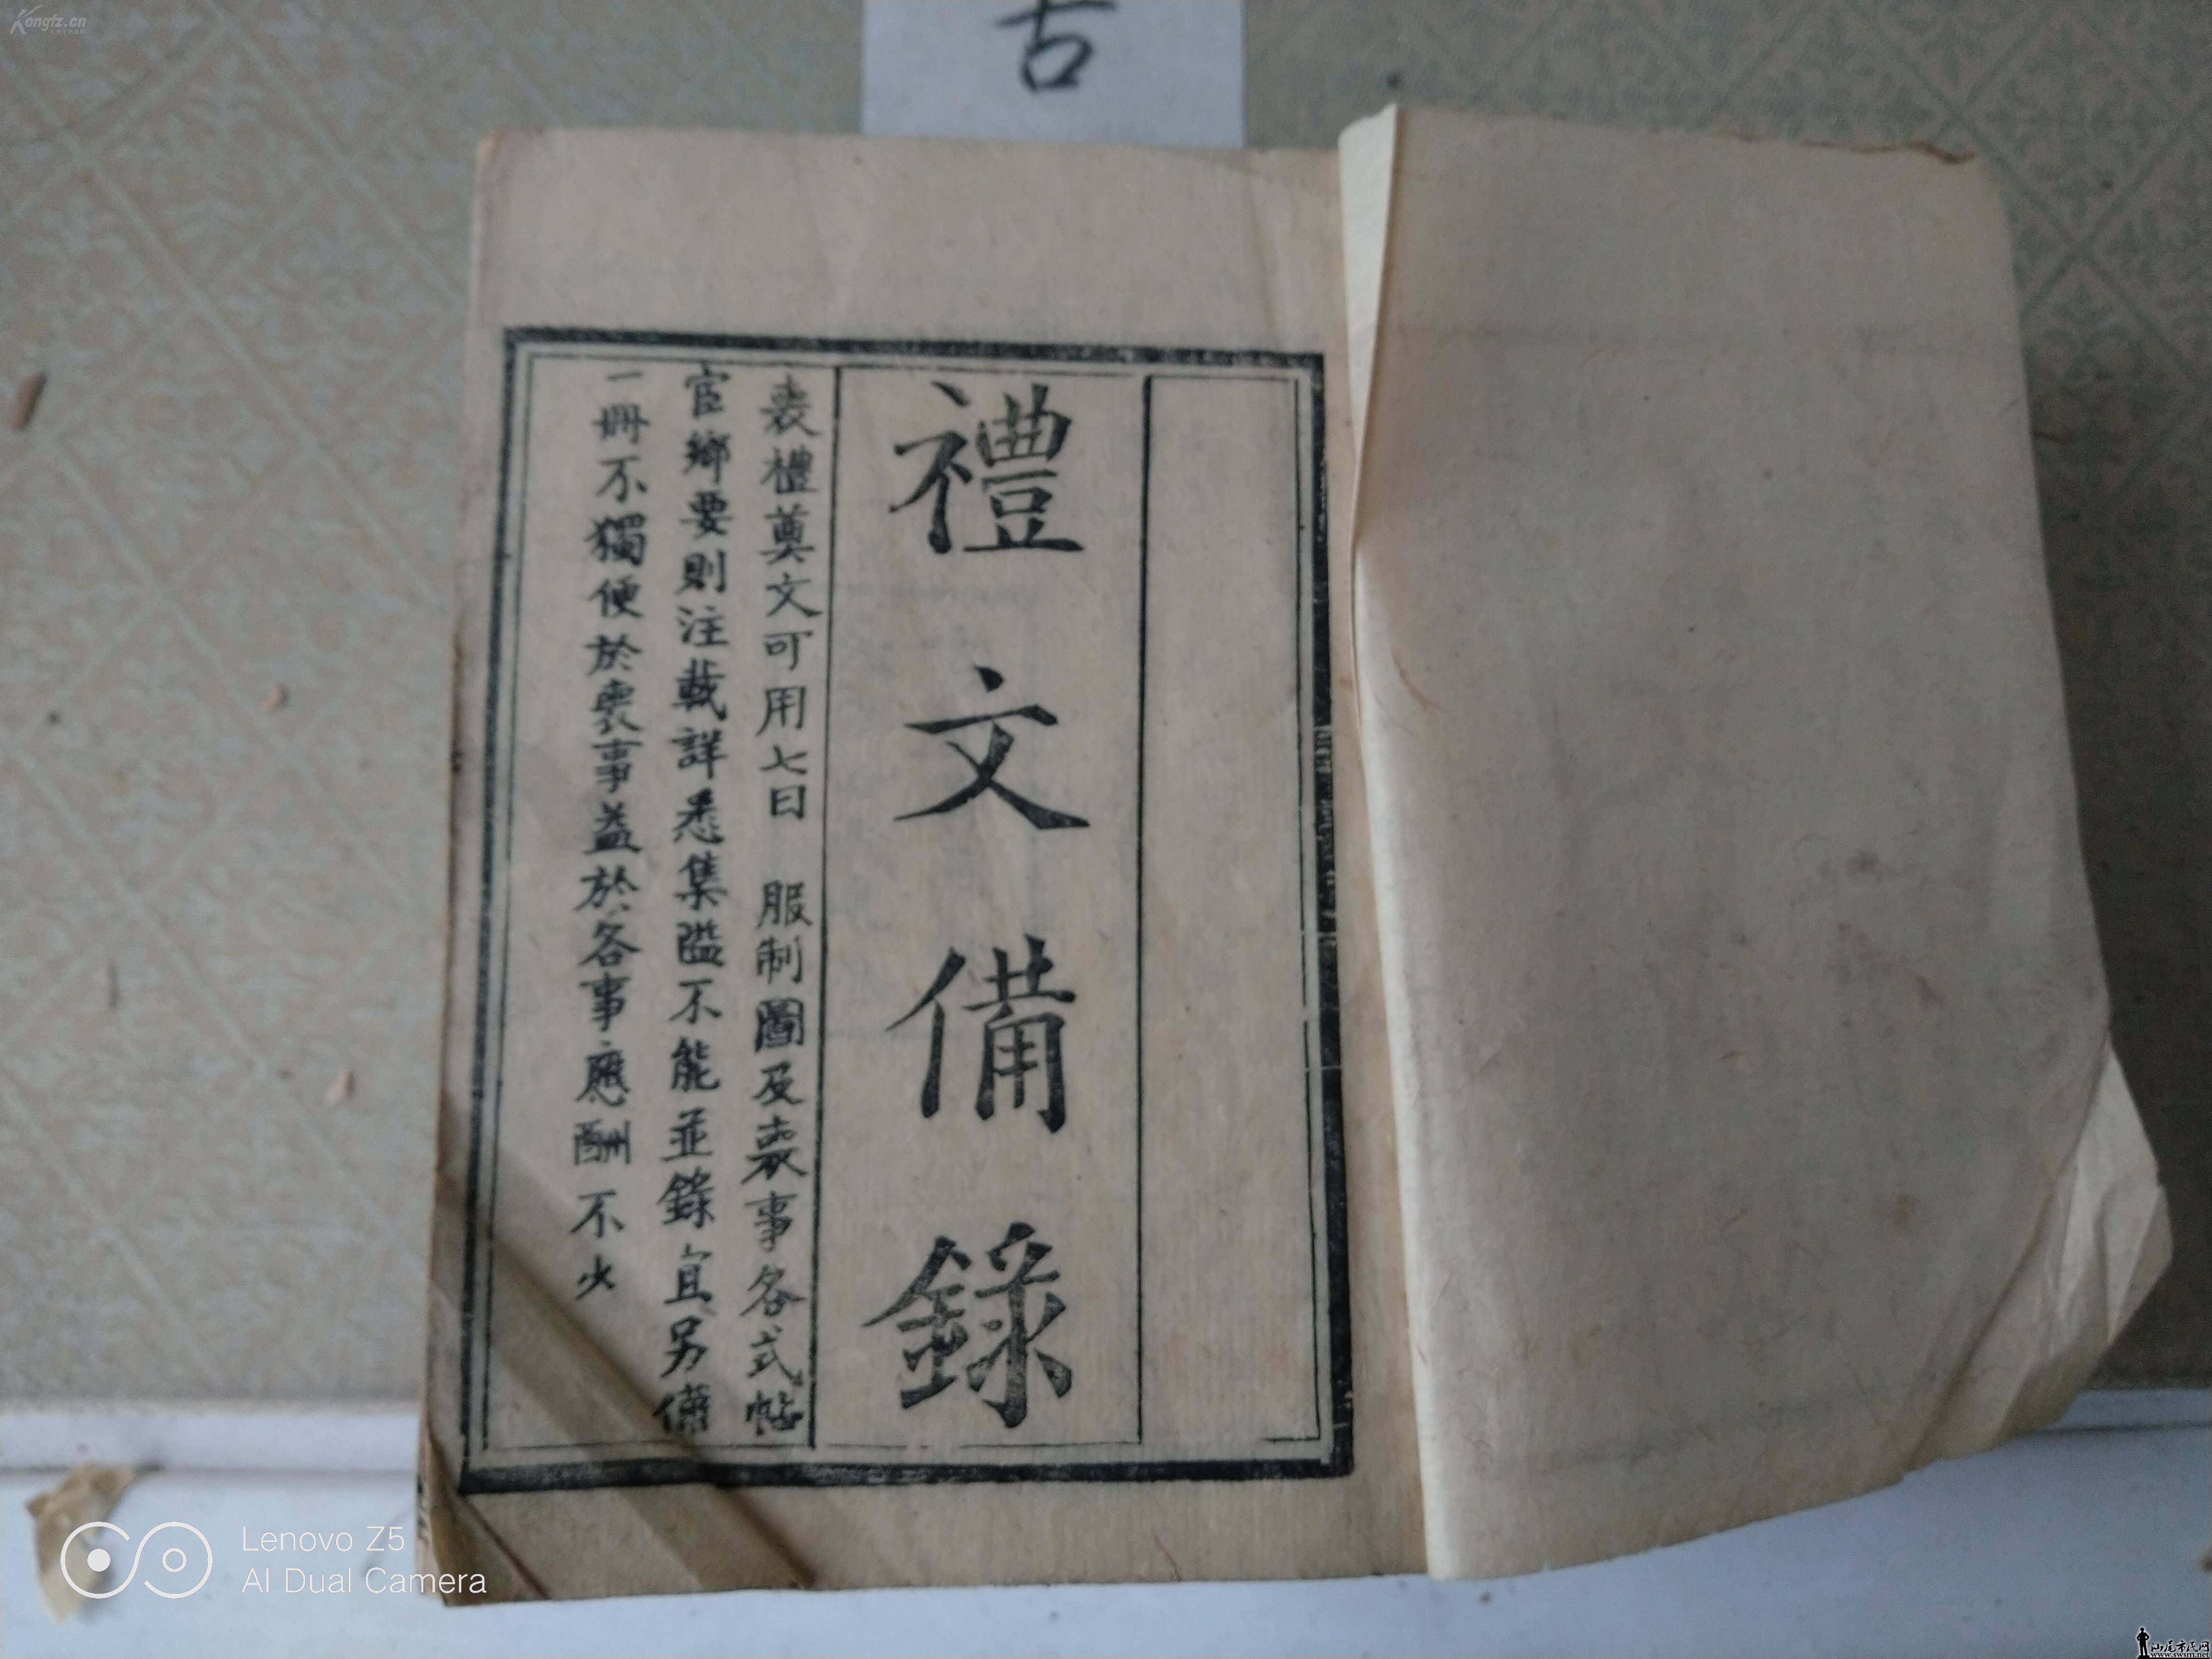 Kongfz.cn
古
禮文備錄
喪禮奠文可用七日 服制圖及喪事各式帖
宦鄉要則注載詳悉集隘不能並錄宜另備
一冊不獨便於喪事蓋於各事應酬不少
Lenovo Z5
AI Dual Camera
汕尾市民网
www.swsm.net